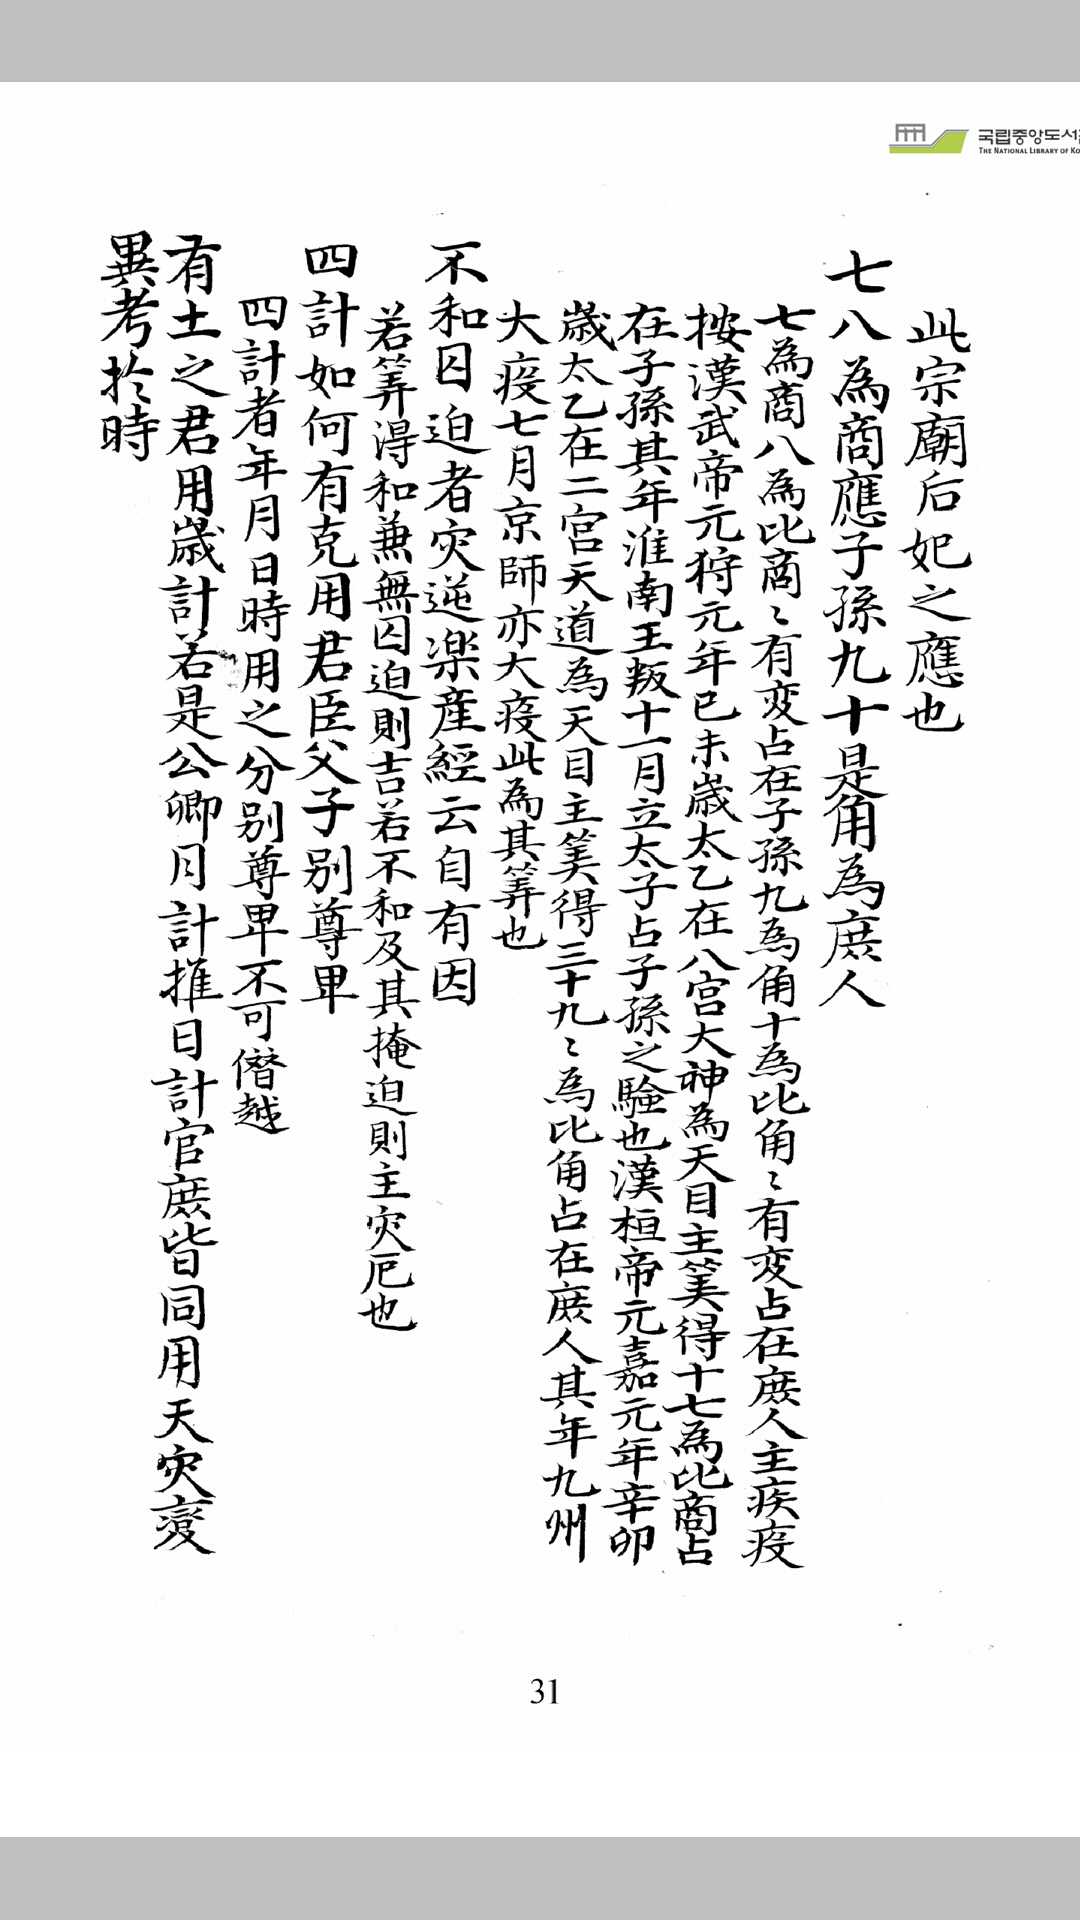 국립중앙도서
THE NATIONAL LIBRARY OF KO
此宗廟后妃之應也
七八為商應子孫九十是角為庶人
七為商八為比商〻有変占在子孫九為角十為比角〻有変占在庶人主疾疫
按漢武帝元狩元年已未歲太乙在八宮大神為天目主筭得十七為比商占
在子孫其年淮南王叛十一月立太子占子孫之驗也漢桓帝元嘉元年辛卯
歲太乙在二宮天道為天目主筭得三十九〻為比角占在庶人其年九州
大疫七月京師亦大疫此為其筭也
不和囚迫者灾逆楽産經云自有因
若筭得和兼無囚迫則吉若不和及其掩迫則主灾厄也
四計如何有克用君臣父子別尊卑
四計者年月日時用之分別尊卑不可僭越
有土之君用歲計若是公卿月計推日計官庶皆同用天灾變
異考扵時
31